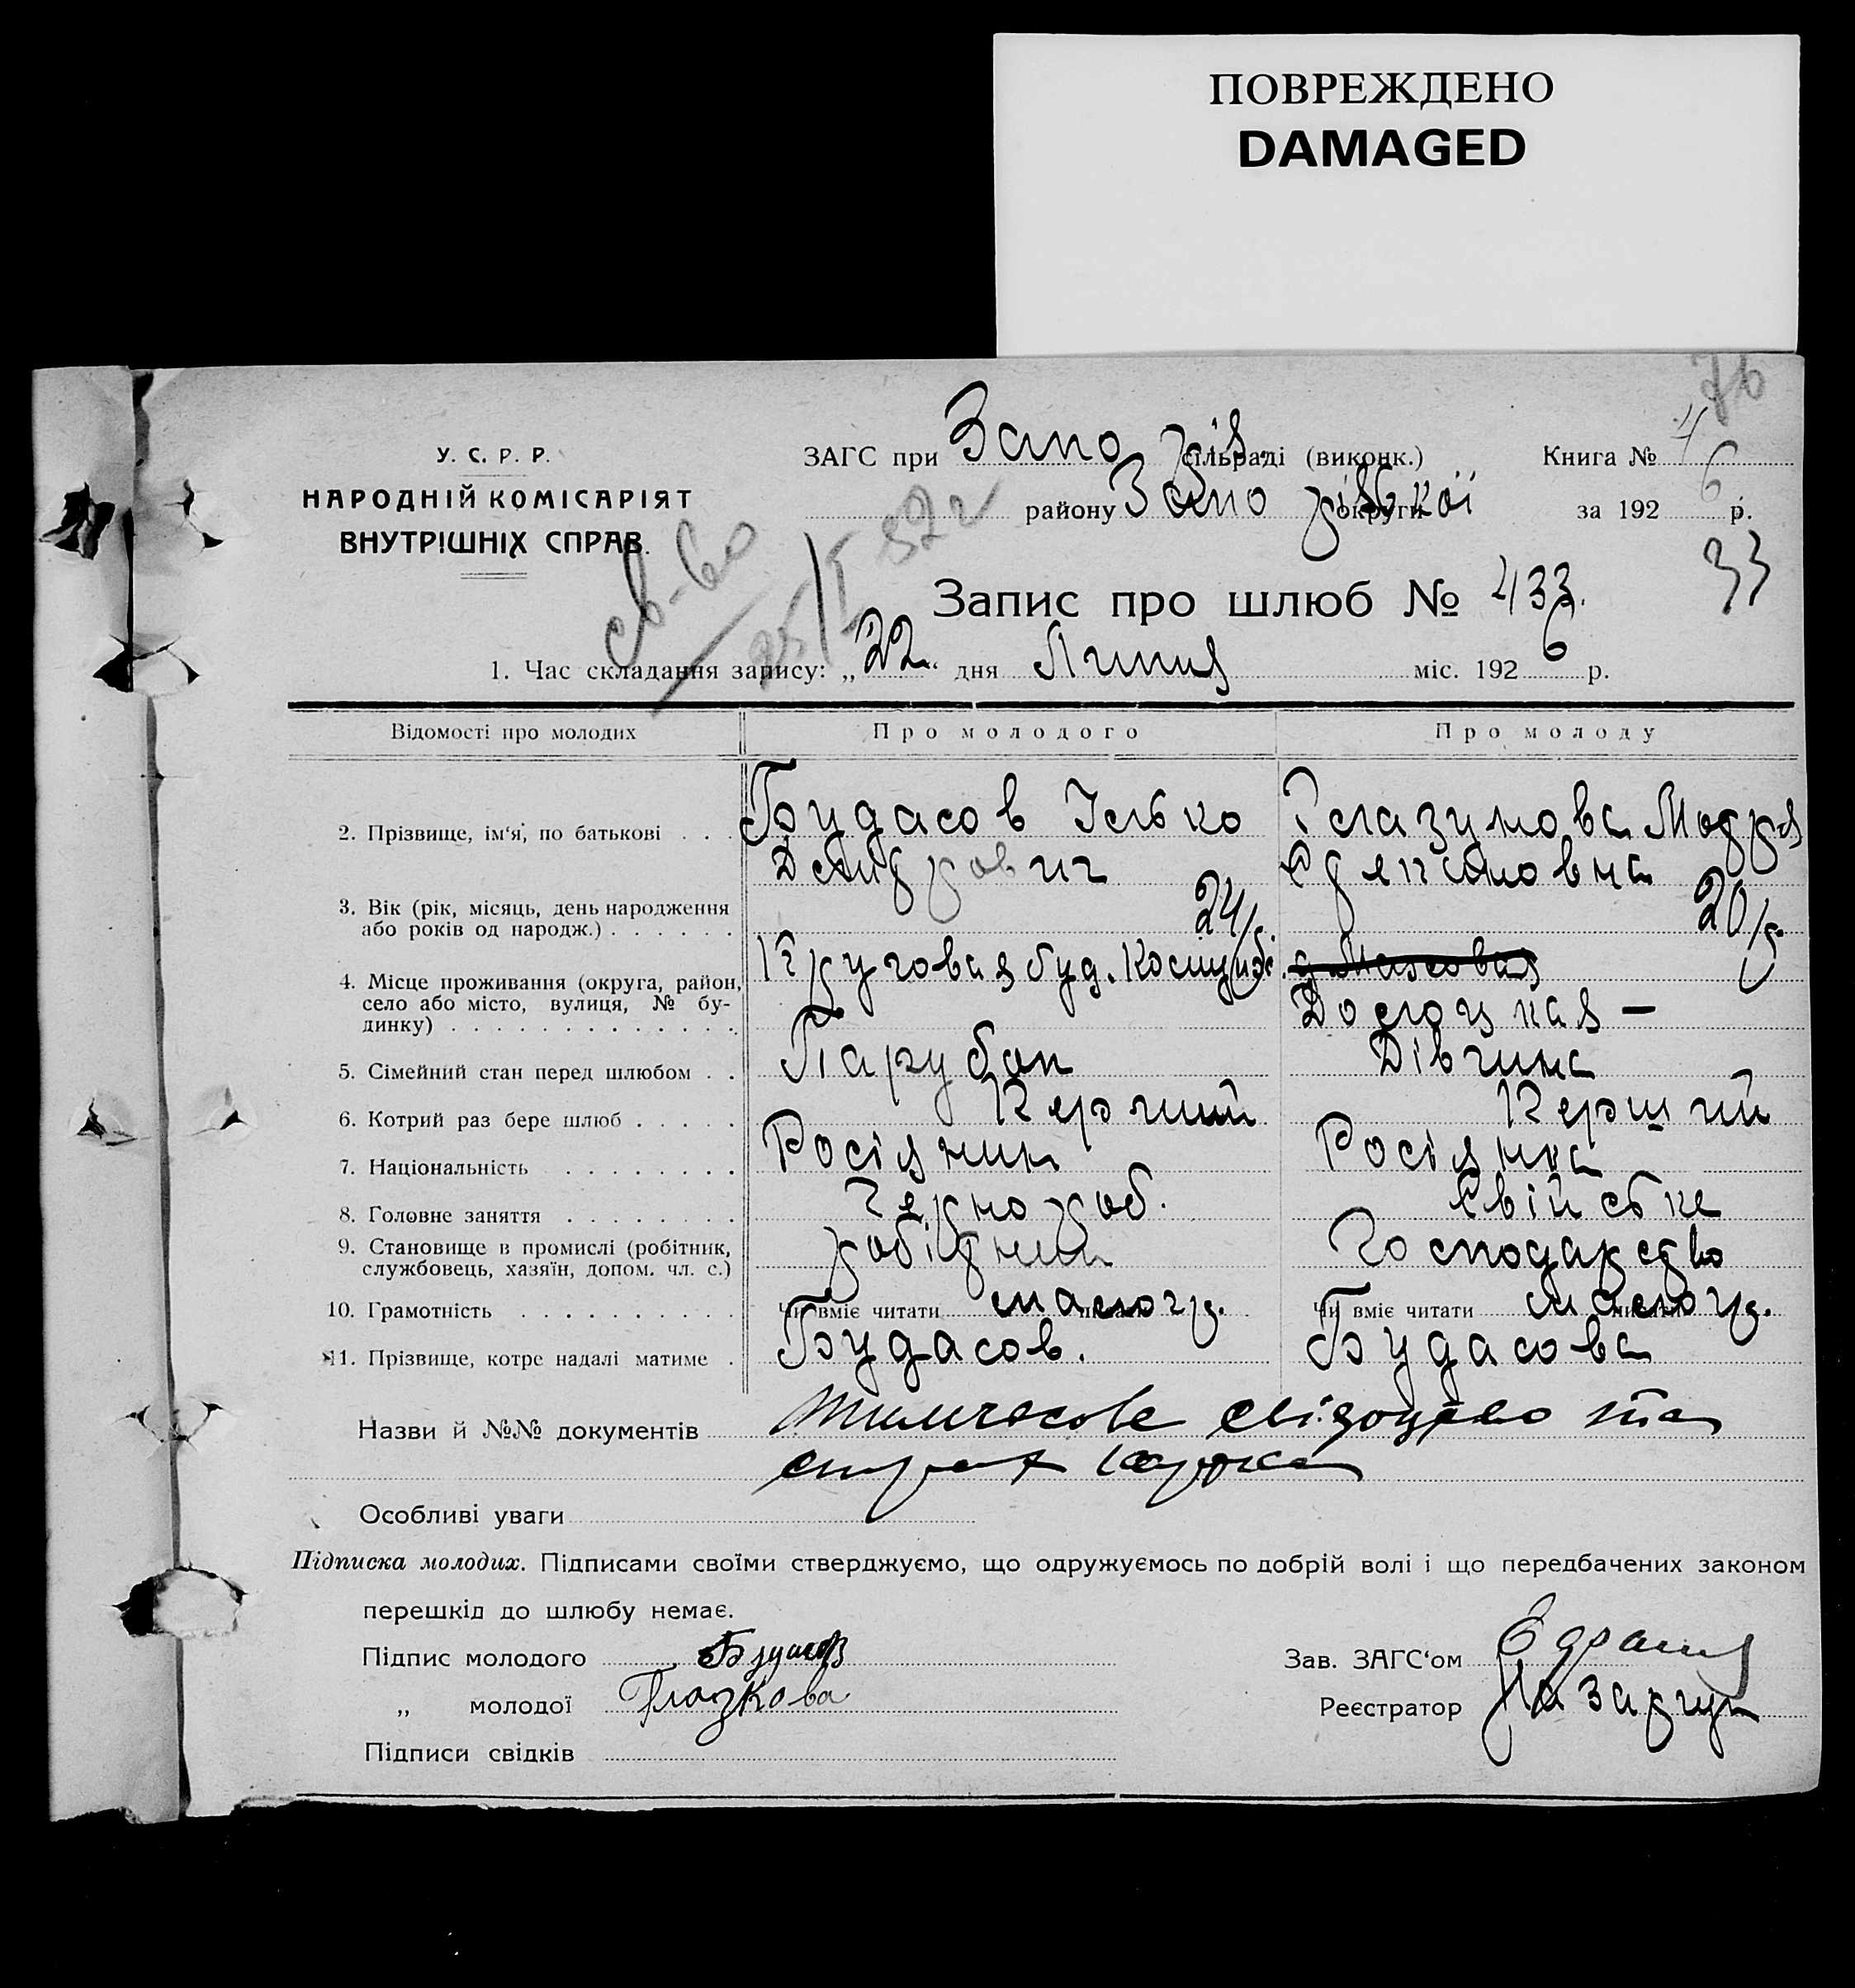 ПОВРЕЖДЕНО
DAMAGED
76
У. С. Р. Р.
НАРОДНІЙ КОМІСАРІЯТ
ВНУТРІШНІХ СПРАВ.
ЗАГС при Запоріз. сільраді (виконк.)
району Запорізької округи
Книга № 4
за 1926 р.
св-во
25/I 52 г
Запис про шлюб № 433.
33
1. Час складання запису: „22“ дня Липня міс. 1926 р.
Відомості про молодих
Про молодого
Про молоду
2. Прізвище, ім‘я, по батькові . . .
Будасов Ілько
Глазунова Мотря
3. Вік (рік, місяць, день народження
або років од народж.) . . . . . .
24/р.
20/р.
4. Місце проживання (округа, район,
село або місто, вулиця, № бу-
динку) . . . . . . . . . . . . .
Круговая буд.
5. Сімейний стан перед шлюбом . .
Парубок
Дівчина
6. Котрий раз бере шлюб . . . . .
Перший
Перший
7. Національність . . . . . . . .
Росіянин
Росіянка
8. Головне заняття . . . . . . . .
Чернороб.
Свійське
9. Становище в промислі (робітник,
службовець, хазяїн, допом. чл. с.)
робітник
Господарство
10. Грамотність . . . . . . . . . .
Чи вміє читати малогр.
Чи вміє читати малогр.
11. Прізвище, котре надалі матиме .
Будасов.
Будасова
Назви й №№ документів тимчасове свідоцтво та
страх картка
Особливі уваги
Підписка молодих. Підписами своїми стверджуємо, що одружуємось по добрій волі і що передбачених законом
перешкід до шлюбу немає.
Підпис молодого Будасов
Зав. ЗАГС‘ом
„ молодої Глазкова
Реєстратор Назарчук
Підписи свідків